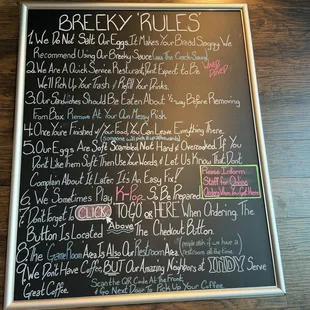 BREEKY 'RULES'
1. We Do Not Salt Our Eggs. It Makes Your Bread Soggy We
Recommend Using Our Breeky Sauce
2. We Are A Quick Service Restaurant, Dont Expect to Be
We'll Pick Up Your Trash / Refill Your Drinks.
3. Our Sandwiches Should Be Eaten About 1/2 way Before Removing
From Box. Remove At Your Own Messy Risk.
4. Once You're Finished w/ your Food, You Can Leave Everything There,
5. Our Eggs Are Soft Scrambled Not Hard & Overcooked. If You
Dont Like them Soft Then Use Your Words & Let Us Know That. Dont
Complain About It Later. It's An Easy Fix!
6. We Sometimes Play K-Pop, So Be Prepared
Please Inform
Staff for Online
Orders When You Get Here
7. Don't Forget to CLICK TO GO or HERE When Ordering. The
Button Is Located Above The Checkout Button.
8. The Game Room Area Is Also Our Restroom Area (people often if we have a
restroom all the time)
9. We Dont Have Coffee, BUT Our Amazing Neighbors at INDY Serve
Great Coffee.
Scan the QR Code At the Front
& Go Next Door To Pick Up Your Coffee